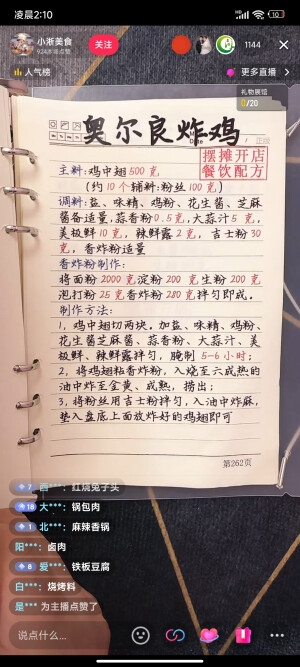 凌晨2:10
10
小淅美食
924本场点赞
关注
1144
人气榜
更多直播
礼物展馆
0/20
奥尔良炸鸡
Date
摆摊开店
餐饮配方
主料:鸡中翅500克
(约10个辅料:粉丝100克)
调料:盐、味精、鸡粉、花生酱、芝麻
酱备适量,蒜香粉0.5克,大蒜汁5克,
美极鲜10克,辣鲜露2克,吉士粉30
克,香炸粉适量
香炸粉制作:
将面粉2000克淀粉200克生粉200克
泡打粉25克香炸粉280克拌匀即成。
制作方法:
1,鸡中翅切两块。加盐、味精、鸡粉、
花生酱芝麻酱、蒜香粉、大蒜汁、美
极鲜、辣鲜露拌匀,腌制5-6小时;
2,将鸡翅粘香炸粉,入烧至六成热的
油中炸至金黄、成熟,捞出;
3,将粉丝用吉士粉拌匀,入油中炸麻,
垫入盘底上面放炸好的鸡翅即可
第262页
7 西***:红烧兔子头
18 大***:锅包肉
1 北***:麻辣香锅
阳***:卤肉
8 爱***:铁板豆腐
白***:烧烤料
是*** 为主播点赞了
说点什么...